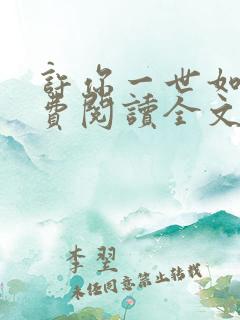 許你一世如
費閱讀全文
李翌
未經同意禁止轉載